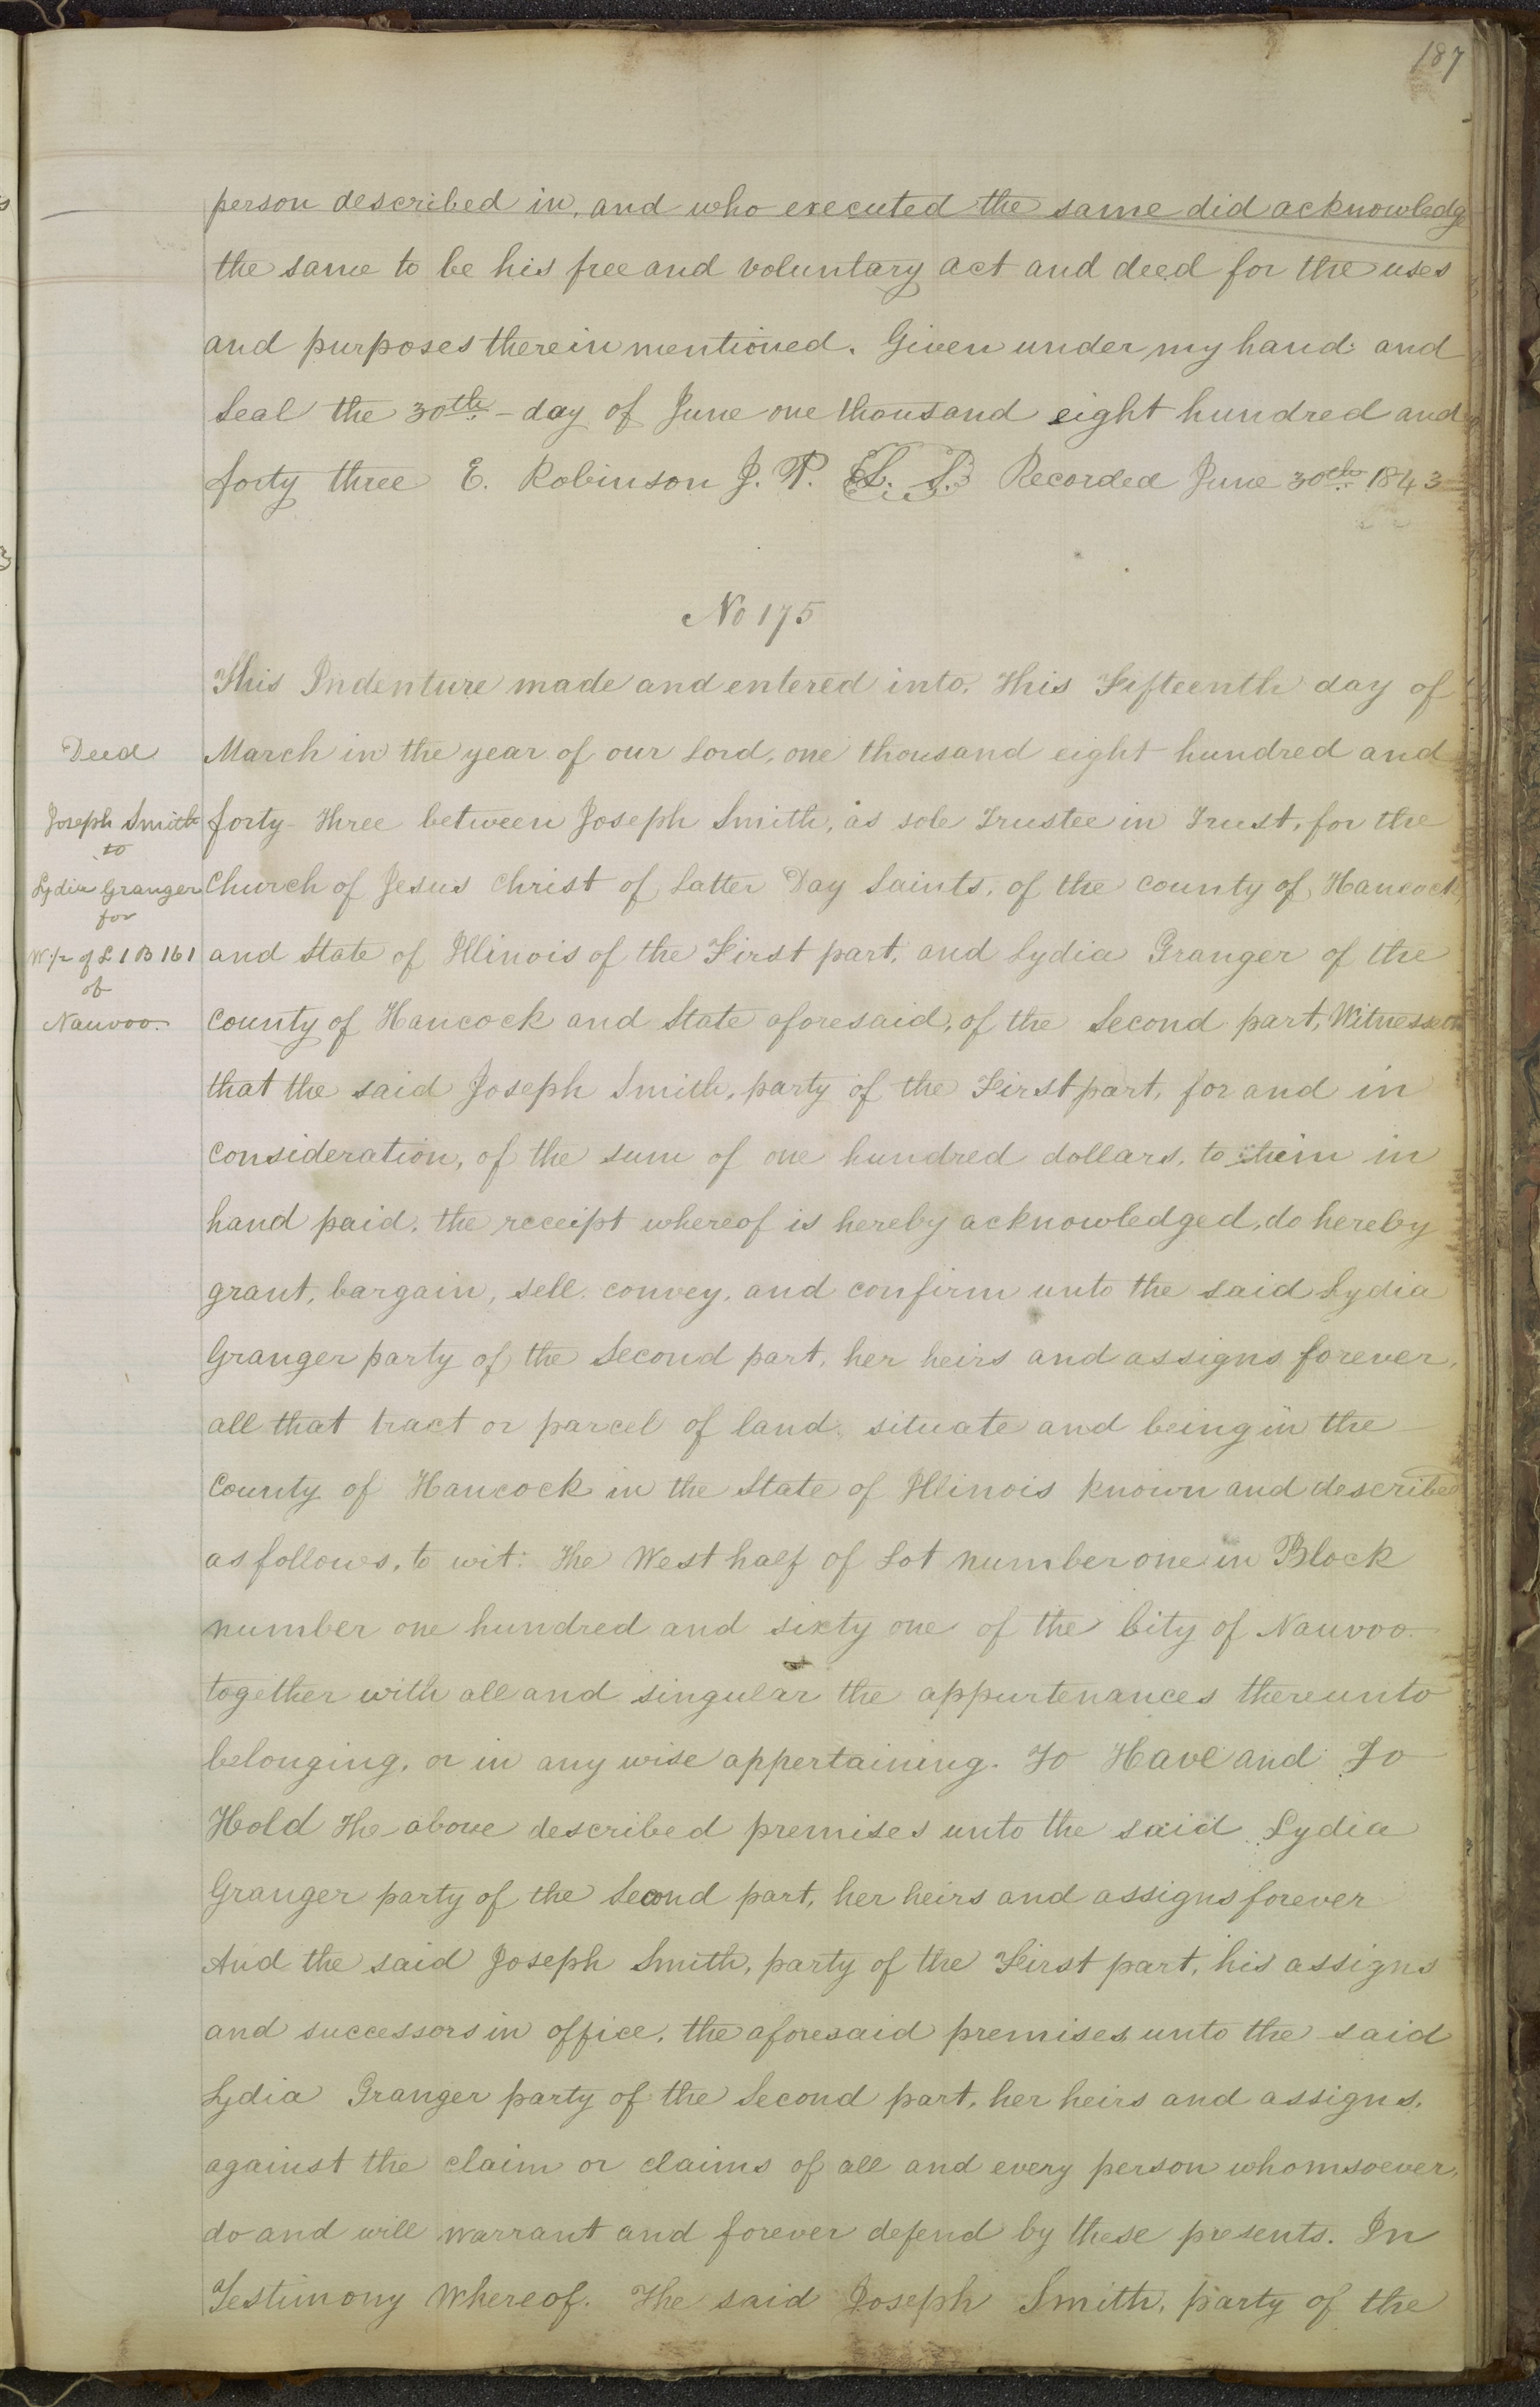 187
person described in, and who executed the same did acknowledg
the same to be his free and voluntary act and deed for the uses
and purposes therein mentioned. Given under my hand and
Seal the 30th day of June one thousand eight hundred and
forty three E. Robinson J. P. L. S. Recorded June 30th 1843
No 175
This Indenture made and entered into, this Fifteenth day of
March in the year of our Lord, one thousand eight hundred and
forty three between Joseph Smith, as sole Trustee in Trust, for the
Church of Jesus Christ of Latter Day Saints, of the county of Hancock
and State of Illinois of the First part, and Lydia Granger of the
County of Hancock and State aforesaid, of the Second part, Witnesseth
that the said Joseph Smith, party of the First part, for and in
consideration, of the sum of one hundred dollars, to him in
hand paid, the receipt whereof is hereby acknowledged, do hereby
grant, bargain, sell, convey, and confirm unto the said Lydia
Granger party of the Second part, her heirs and assigns forever,
all that tract or parcel of land, situate and being in the
County of Hancock in the State of Illinois known and described
as follows, to wit: The West half of Lot number one in Block
number one hundred and sixty one of the City of Nauvoo
together with all and singular the appurtenances thereunto
belonging, or in any wise appertaining. To Have and To
Hold the above described premises unto the said Lydia
Granger party of the Second part, her heirs and assigns forever
And the said Joseph Smith, party of the First part, his assigns
and successors in office, the aforesaid premises unto the said
Lydia Granger party of the Second part, her heirs and assigns,
against the claim or claims of all and every person whomsoever,
do and will warrant and forever defend by these presents. In
Testimony Whereof. The said Joseph Smith, party of the
Deed
Joseph Smith
to
Lydia Granger
for
W 1/2 of L 1 B 161
of
Nauvoo.